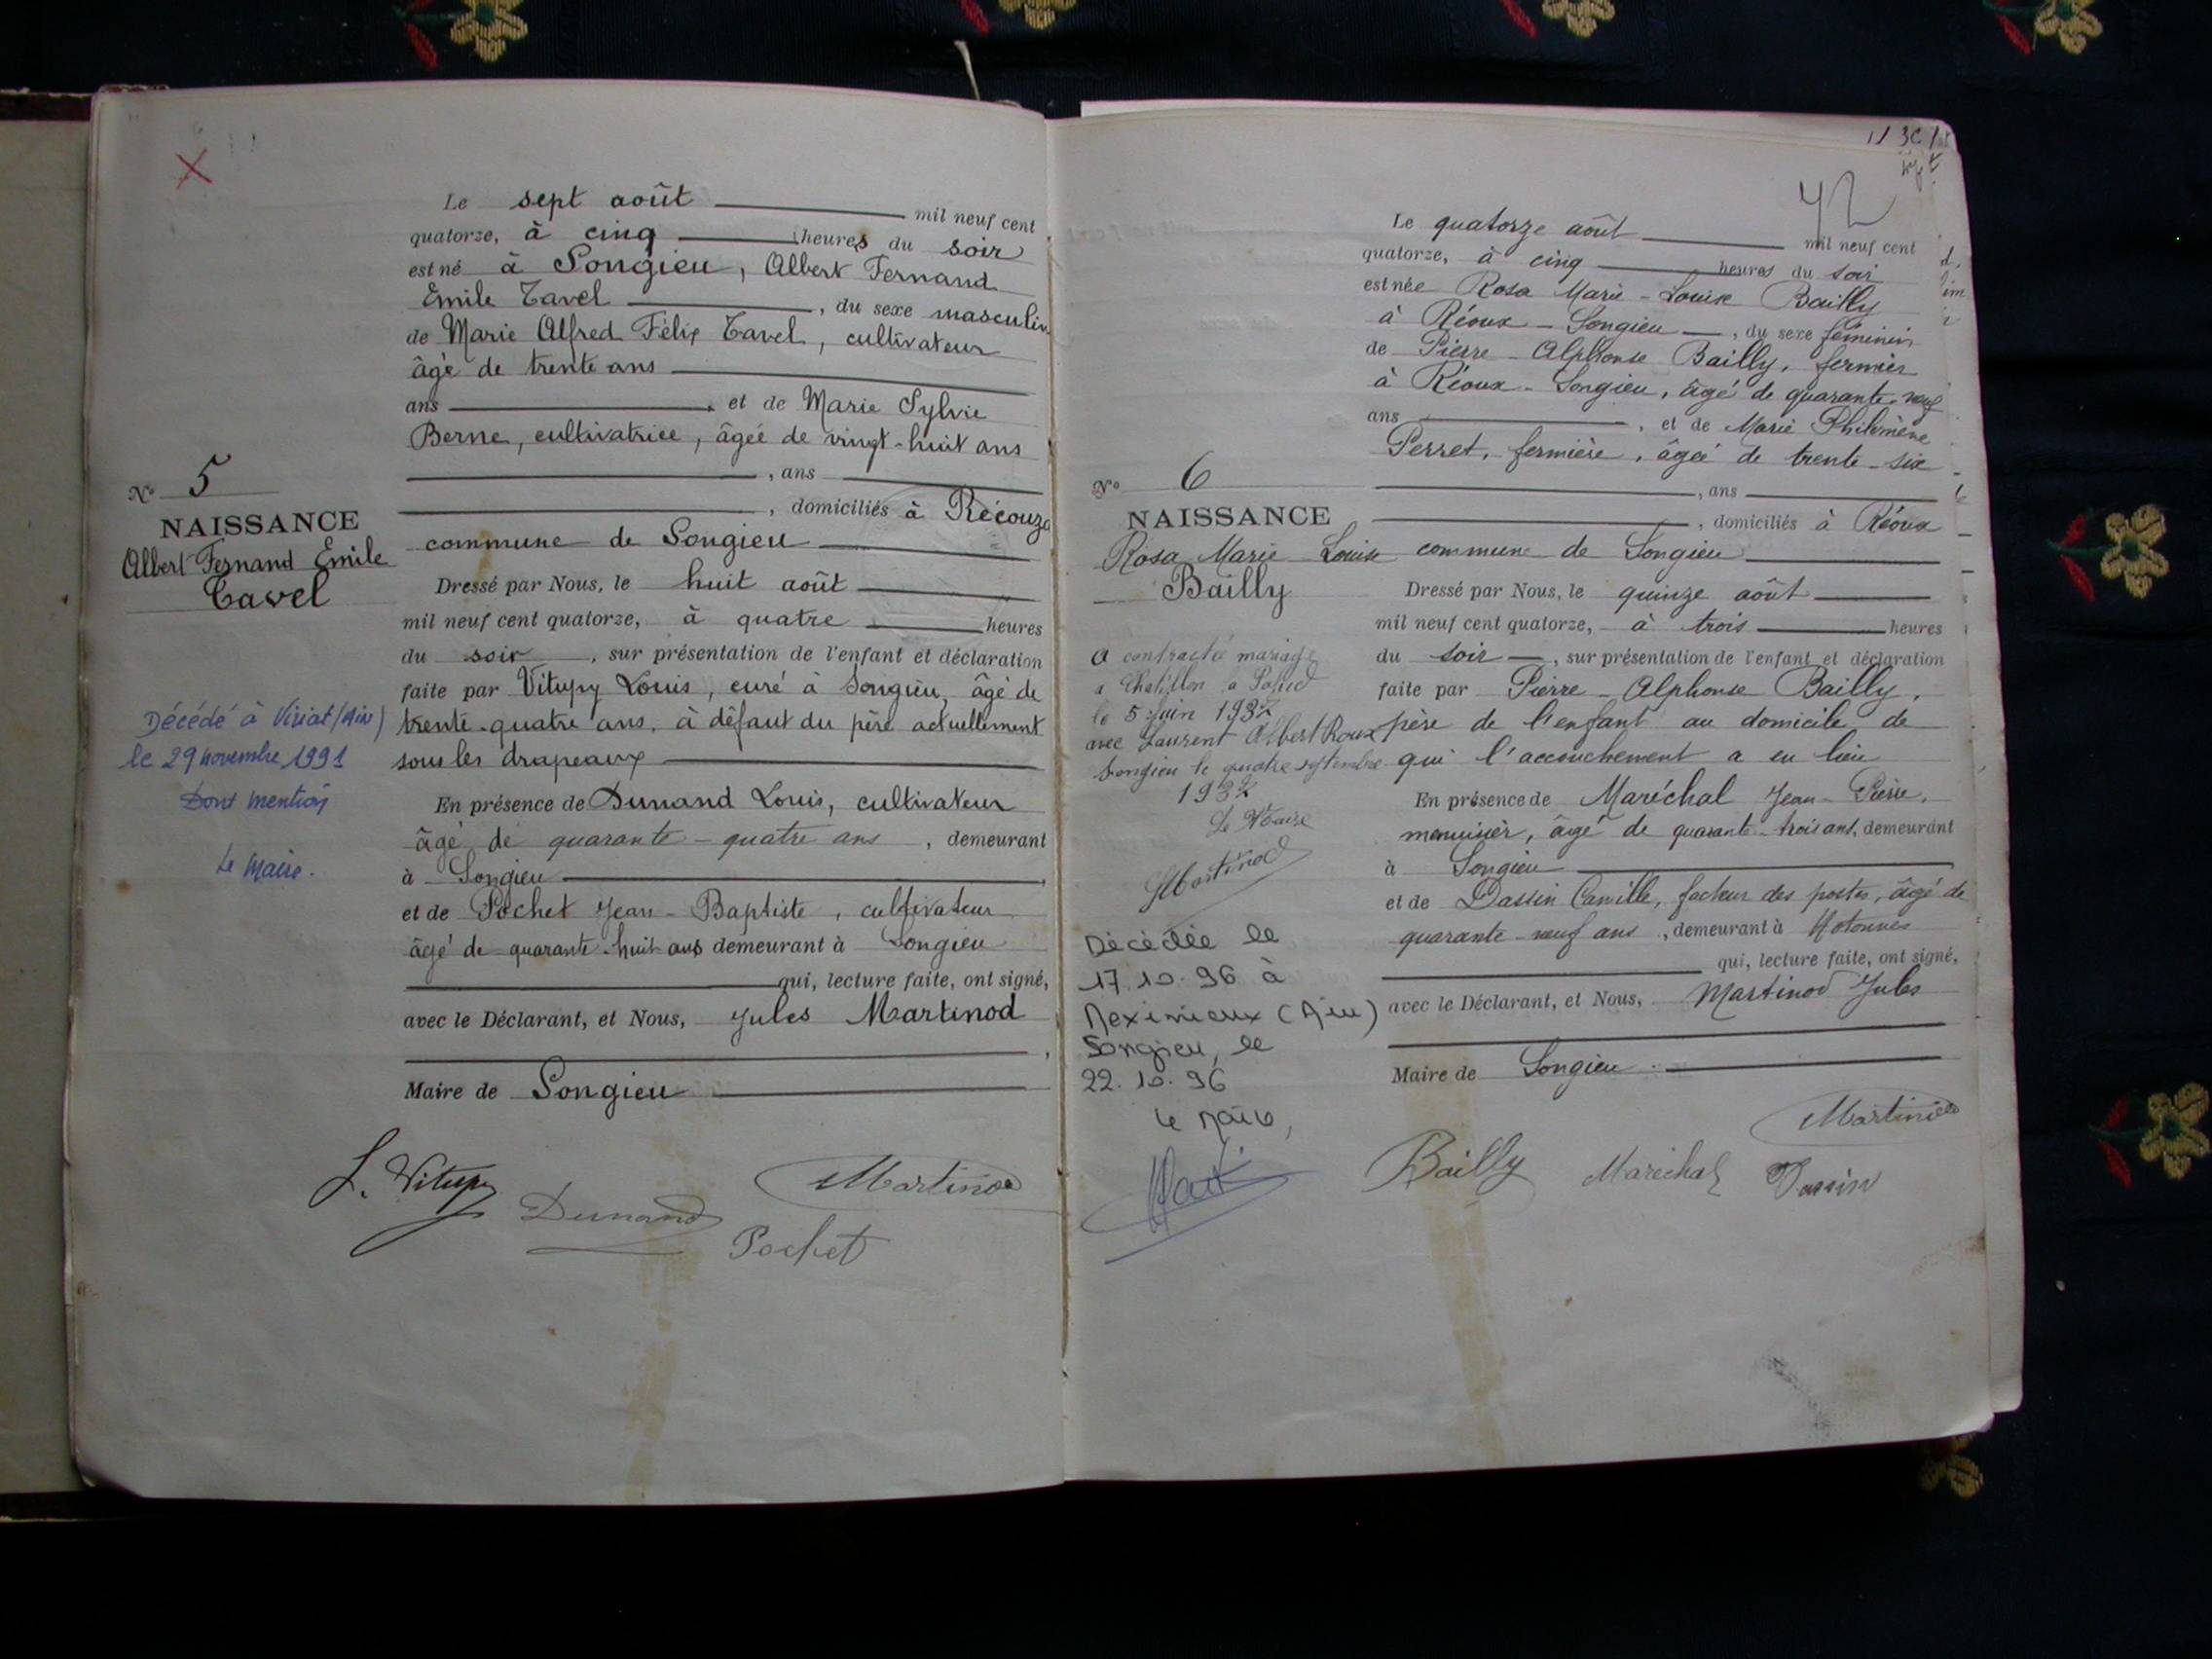 Le sept août mil neuf cent
quatorze, à cinq heures du soir
est né à Songieu, Albert Fernand
Emile Tavel, du sexe masculin
de Marie Alfred Félix Tavel, cultivateur
âgé de trente ans
ans, et de Marie Sylvie
Berne, cultivatrice, âgée de vingt-huit ans
, ans
, domiciliés à
commune de Songieu
N° 5
NAISSANCE
Albert Fernand Emile
Tavel
Dressé par Nous, le huit août
mil neuf cent quatorze, à quatre heures
du soir, sur présentation de l'enfant et déclaration
faite par Vitupy Louis, curé à Songieu, âgé de
trente-quatre ans, à défaut du père actuellement
sous les drapeaux
En présence de Dunand Louis, cultivateur
âgé de quarante-quatre ans, demeurant
à Songieu
et de Pochet Jean-Baptiste, cultivateur
âgé de quarante-huit ans demeurant à Songieu
qui, lecture faite, ont signé,
avec le Déclarant, et Nous, Jules Martinod
Maire de Songieu
Décédé à Viriat (Ain)
le 29 novembre 1991
Dont mention
Le Maire.
L. Vitupy
Martinod
Dunand
Pochet
42
Le quatorze août mil neuf cent
quatorze, à cinq heures du soir
est née Rosa Marie-Louise Bailly
à Réoux-Songieu, du sexe féminin
de Pierre-Alphonse Bailly, fermier
à Réoux-Songieu, âgé de quarante-neuf
ans, et de Marie Philomène
Perret, fermière, âgée de trente-six
, ans
, domiciliés à Réoux
commune de Songieu
N° 6
NAISSANCE
Rosa Marie Louise
Bailly
Dressé par Nous, le quinze août
mil neuf cent quatorze, à trois heures
du soir, sur présentation de l'enfant et déclaration
faite par Pierre-Alphonse Bailly,
père de l'enfant au domicile de
qui l'accouchement a eu lieu
En présence de Maréchal Jean-Pierre,
menuisier, âgé de quarante-trois ans, demeurant
à Songieu
et de Dassin Camille, facteur des postes, âgé de
quarante-neuf ans, demeurant à Hotonnes
qui, lecture faite, ont signé,
avec le Déclarant, et Nous, Martinod Jules
Maire de Songieu
A contracté mariage
à Chatillon
le 5 juin 1937
avec Laurent Albert Roux
Songieu le quatre septembre
1937
Le Maire
Martinod
Décédée le
17.10.96 à
Meximieux (Ain)
Songieu, le
22.10.96
Le Maire,
Martinod
Bailly
Maréchal
Dassin